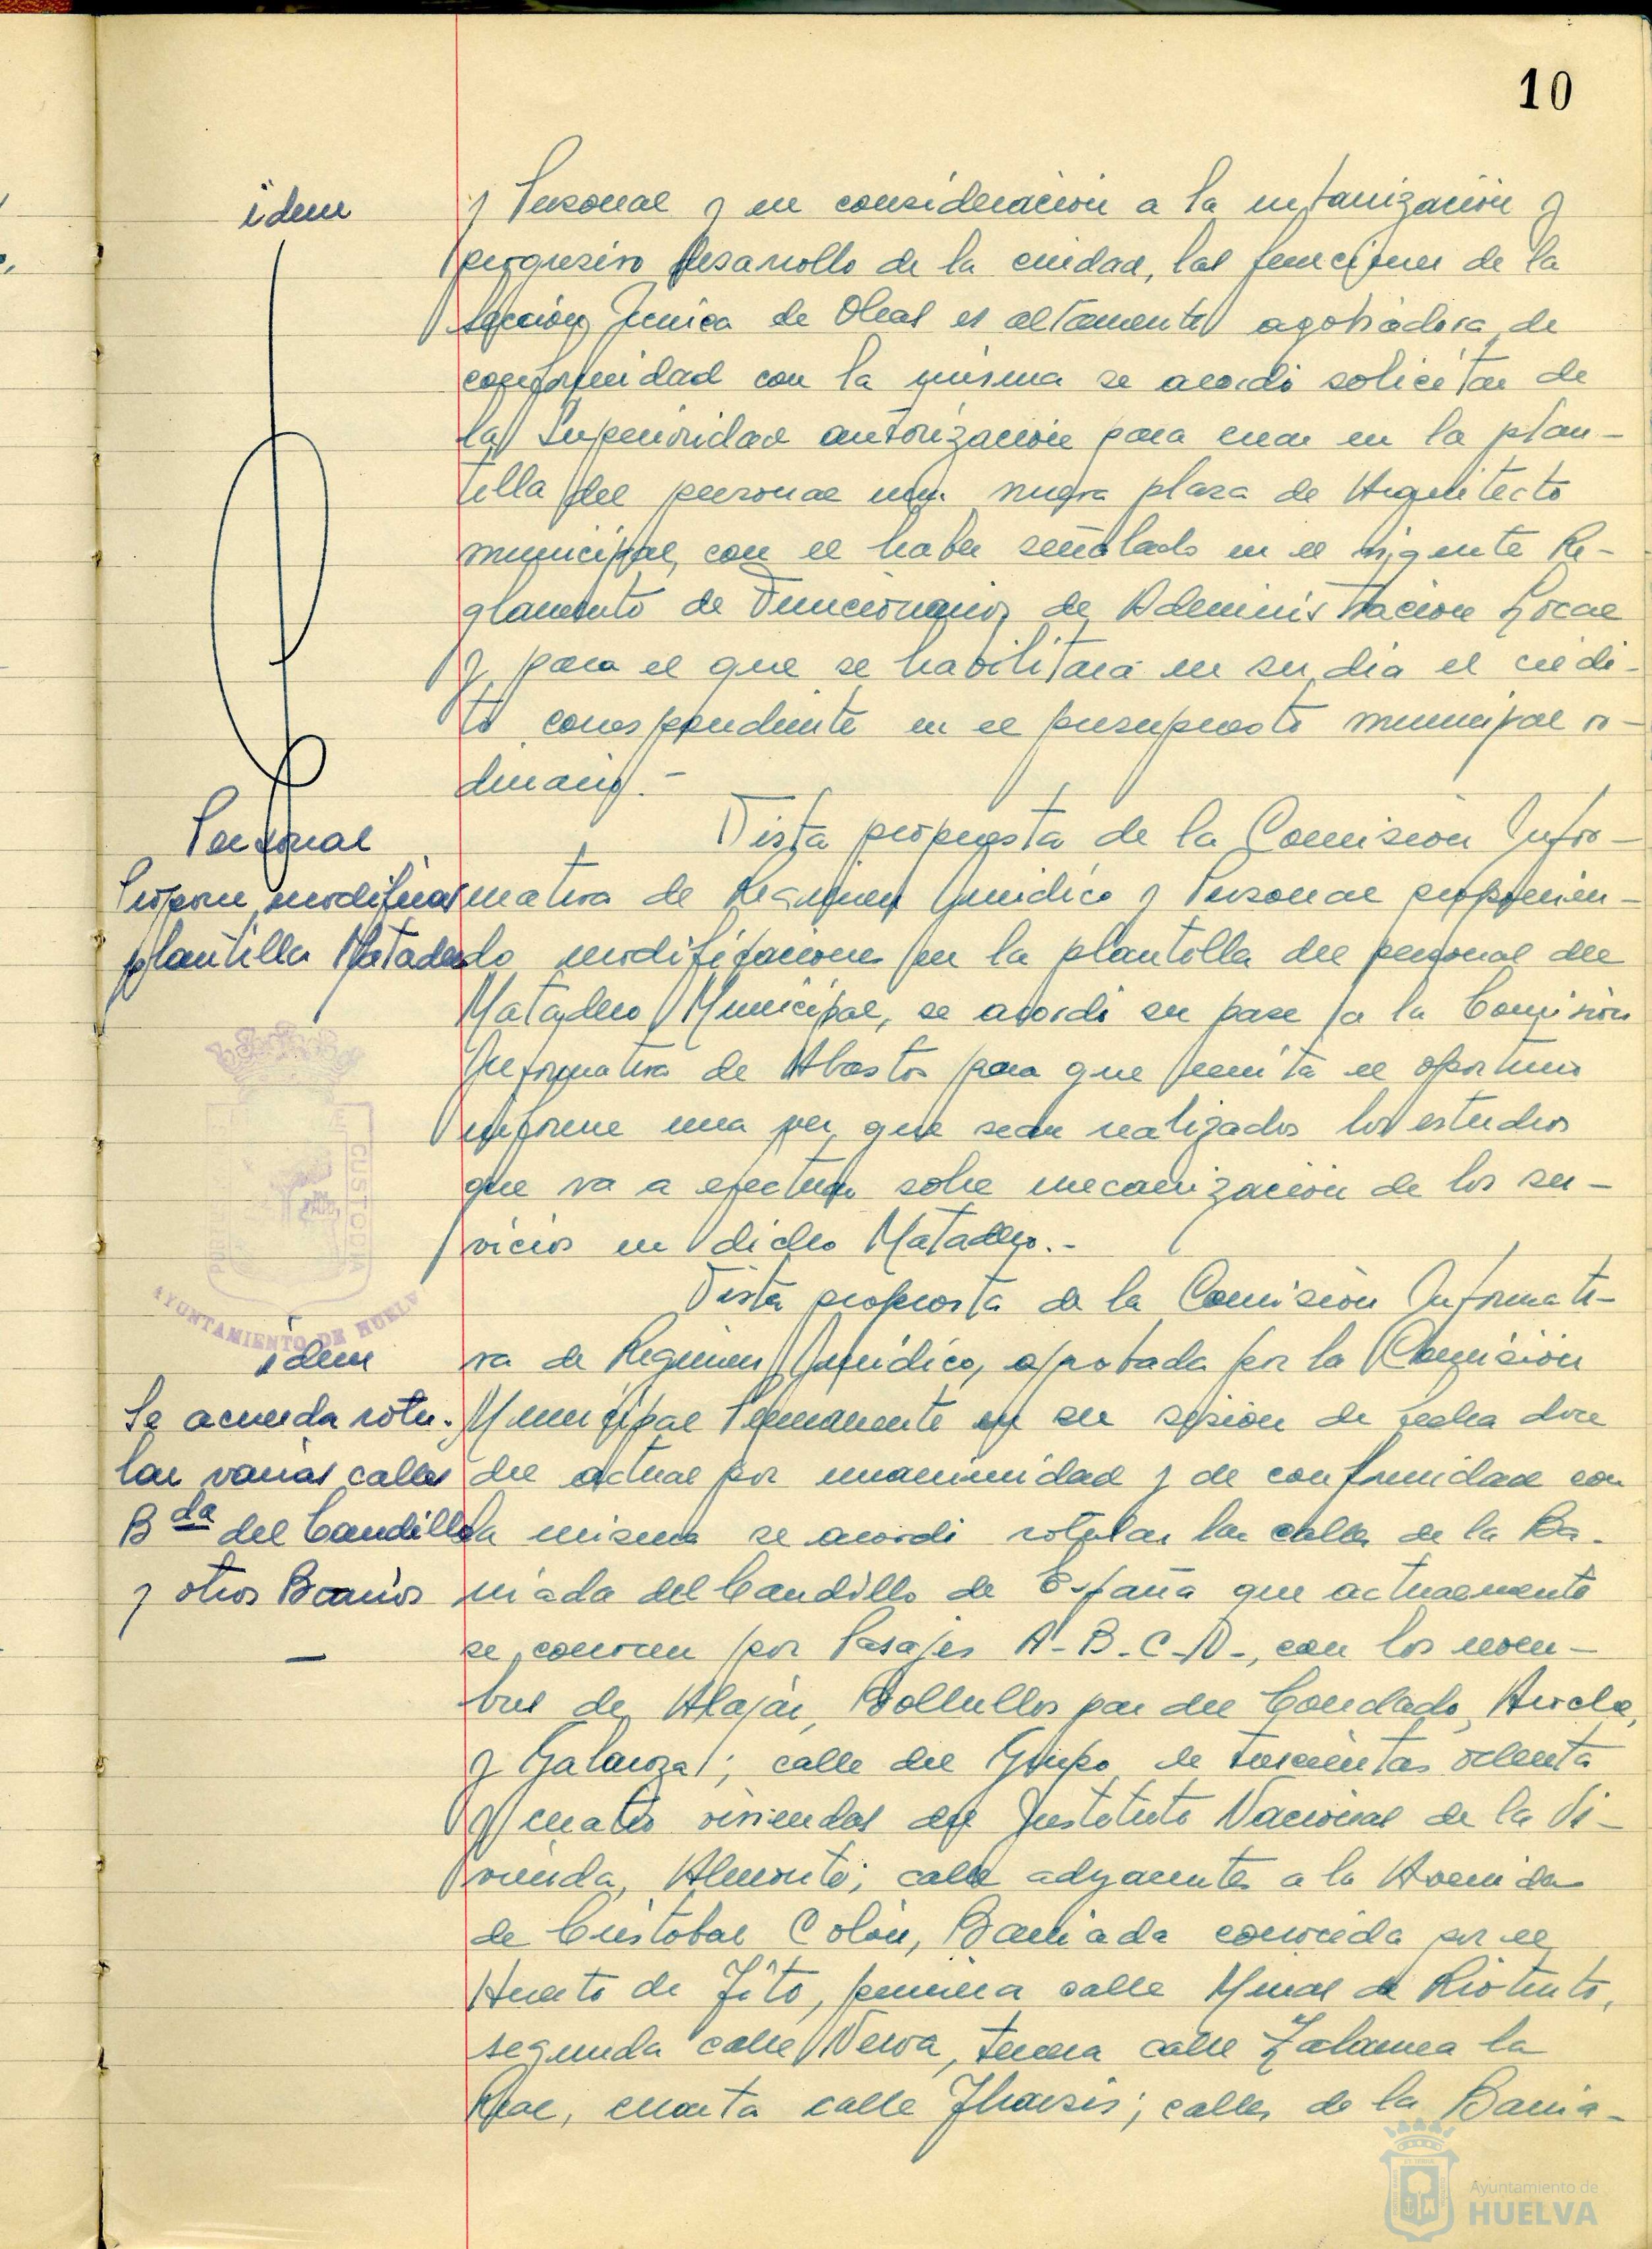 10
idem
y Personal y en consideración a la urbanización y
progresivo desarrollo de la ciudad, las funciones de la
Sección Técnica de Obras es altamente agobiadora, de
conformidad con la misma se acordó solicitar de
la Superioridad autorización para crear en la plan-
tilla del personal una nueva plaza de Arquitecto
municipal, con el haber señalado en el vigente Re-
glamento de Funcionarios de Administración Local
y para el que se habilitará en su día el crédi-
to correspondiente en el presupuesto municipal or-
dinario.-
Personal
Propone modificar
plantilla Matadero
Vista propuesta de la Comisión Infor-
mativa de Regimen Juridico y Personal proponien-
do modificaciones en la plantilla del personal del
Matadero Municipal, se acordó su pase a la Comisión
Informativa de Abastos para que emita el oportuno
informe una vez que sean realizados los estudios
que va a efectuar sobre mecanización de los ser-
vicios en dicho Matadero.-
PORTUS MARIS ET TERRAE CUSTODIA
AYUNTAMIENTO DE HUELVA
idem
Se acuerda rotu-
lar varias calles
Bda del Caudillo
y otros Barrios
Vista propuesta de la Comisión Informati-
va de Regimen Jurídico, aprobada por la Comisión
Municipal Permanente en su sesión de fecha doce
del actual por unanimidad y de conformidad con
la misma se acordó rotular las calles de la Ba-
rriada del Caudillo de España que actualmente
se conocen por Pasajes A-B-C-D-, con los nom-
bres de Alajar, Bollullos par del Condado, Aroche,
y Galaroza; calle del Grupo de trescientas ochenta
y cuatro viviendas del Instituto Nacional de la Vi-
vienda, Almonte; calles adyacentes a la Avenida
de Cristobal Colón, Barriada conocida por el
Huerto de Tito, primera calle Minas de Riotinto,
segunda calle Nerva, tercera calle Zalamea la
Real, cuarta calle Tharsis; calles de la Barria-
Ayuntamiento de
HUELVA